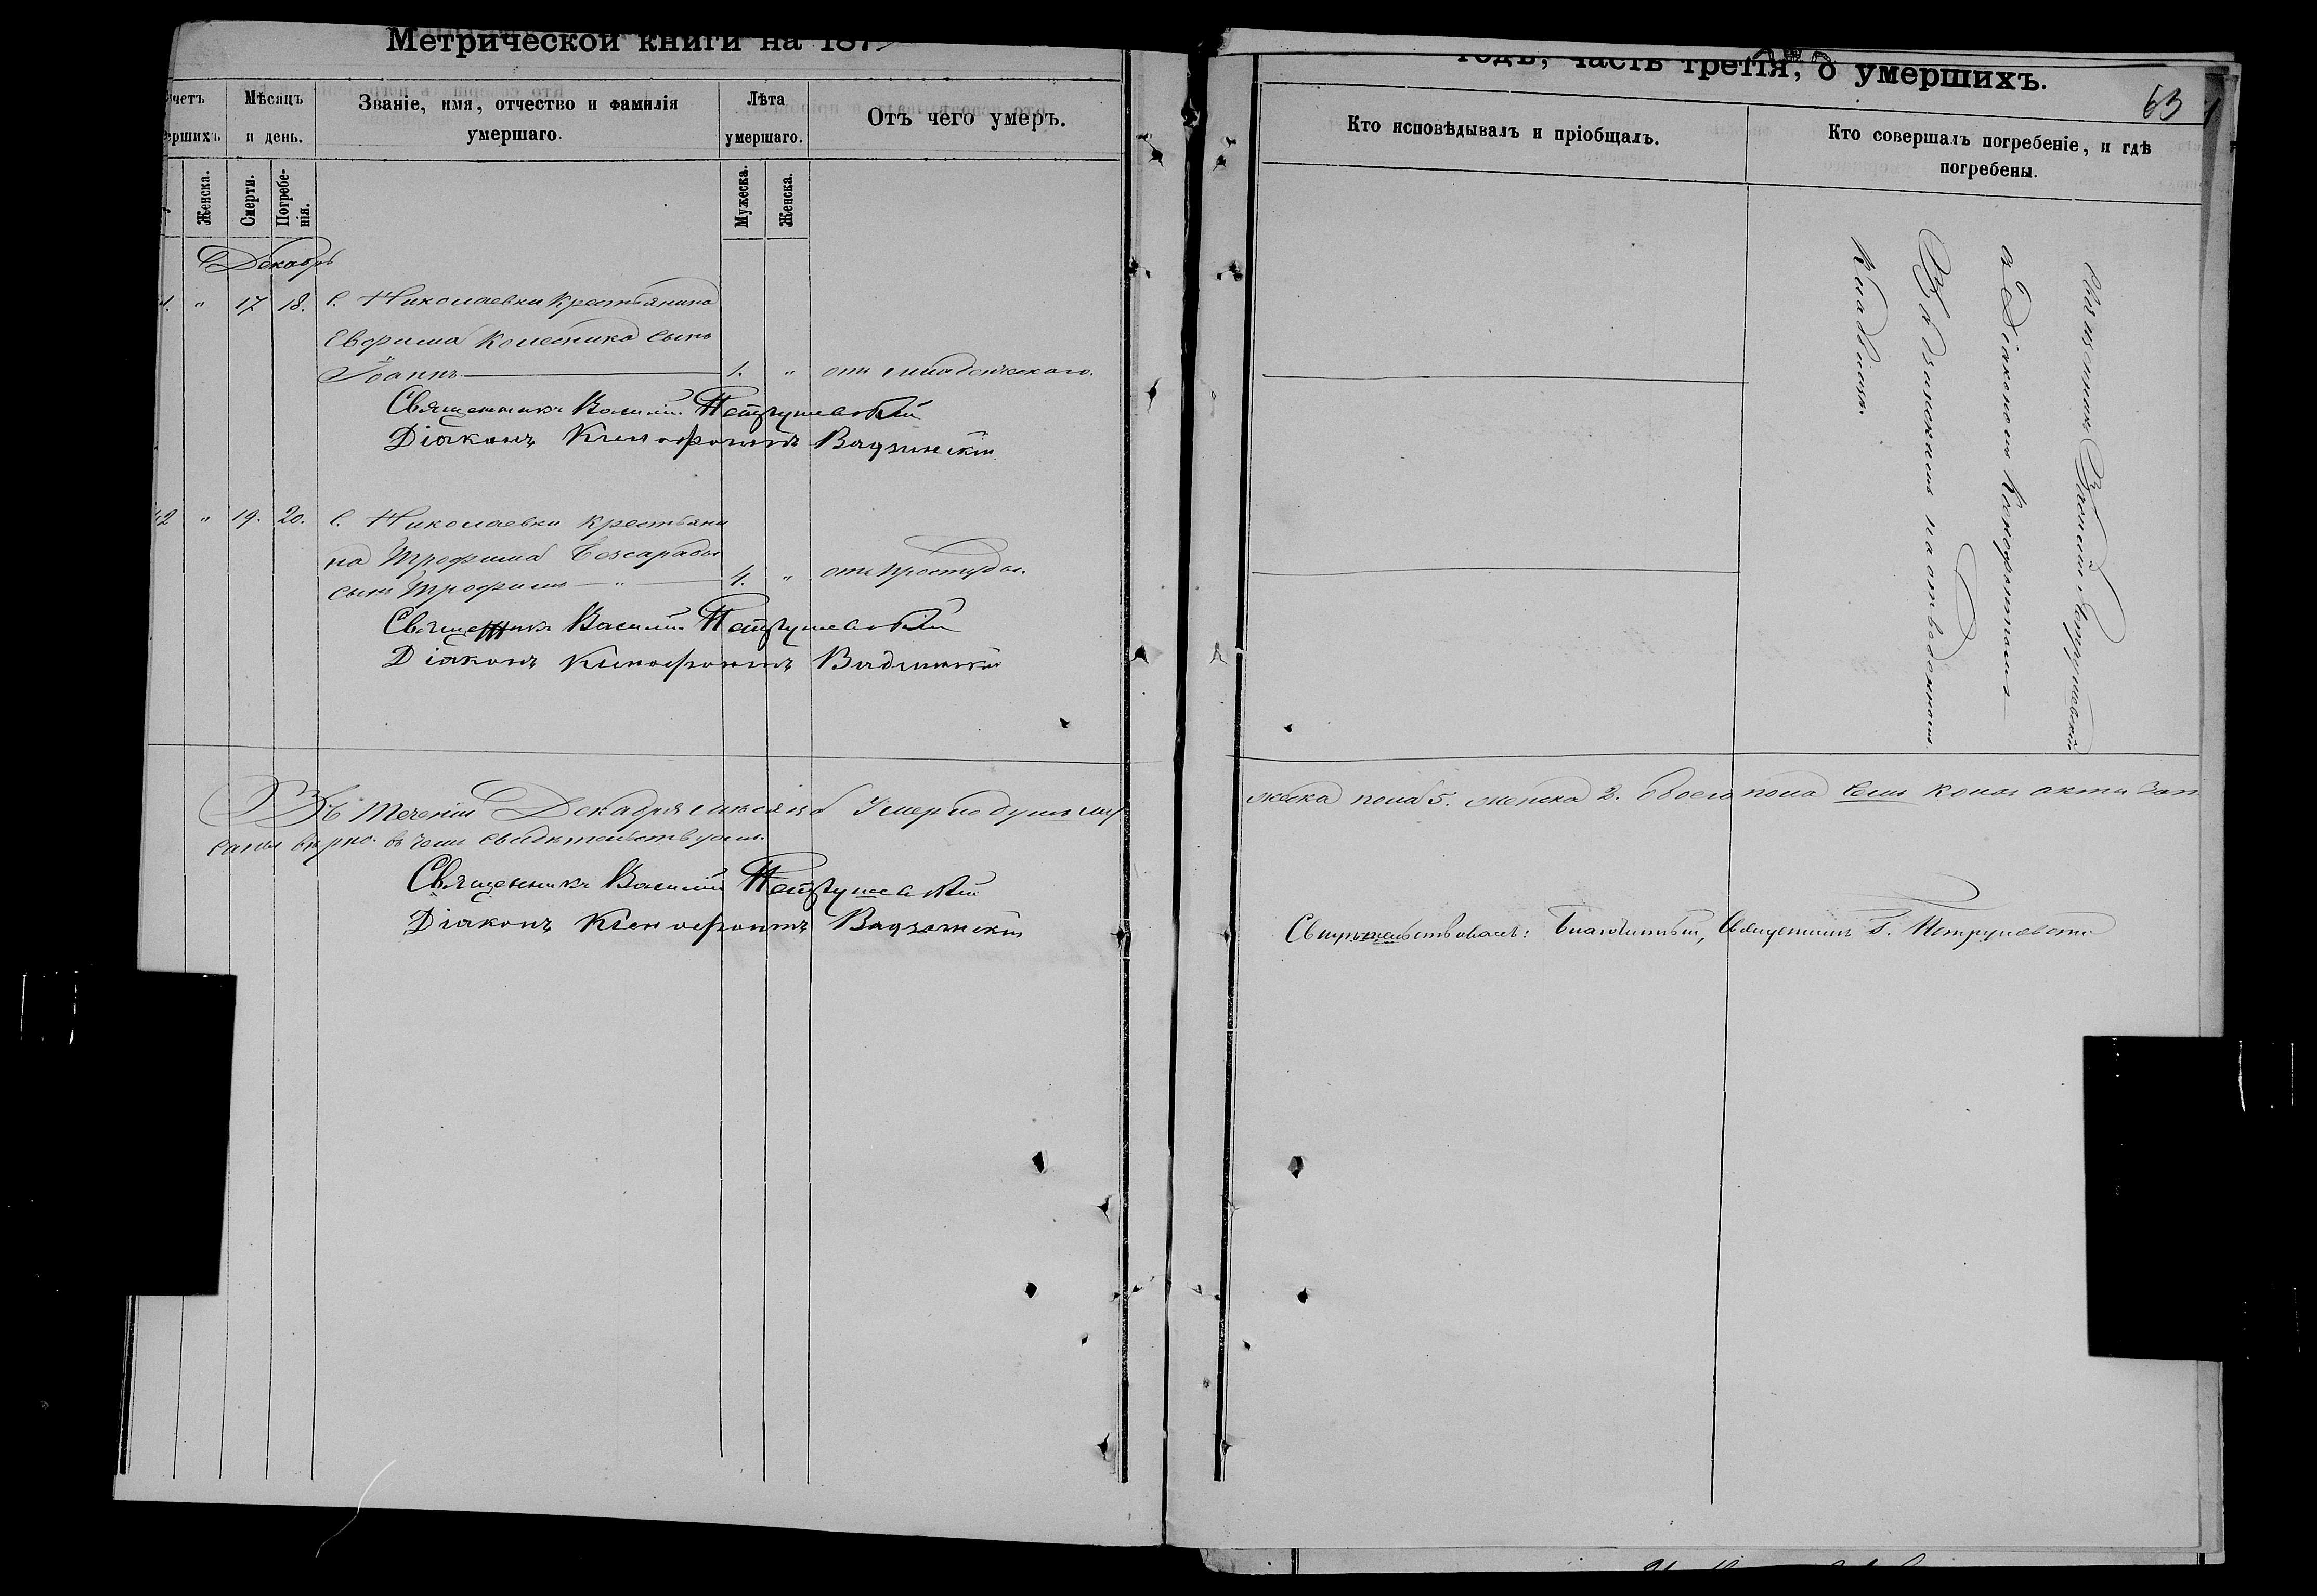 Метрической книги на 187
годъ, часть третія, о умершихъ.
63
Мѣсяцъ и день.
Званіе, имя, отчество и фамилія умершаго.
Лѣта умершаго.
Отъ чего умеръ.
Кто исповѣдывалъ и пріобщалъ.
Кто совершалъ погребеніе, и гдѣ погребены.
Женска.
Смерти.
Погребенія.
Мужеска.
Женска.
Декабрь
" 17 18. С. Николаевки крестьянина
Евфима Колесника сынъ
Іоаннъ 1. " отъ младенческаго.
Священникъ Василій Петрушевскій
Діаконъ Ксенофонтъ Вадзинскій
42 " 19. 20. С. Николаевки крестьяни
на Трофима Бессарабы
сынъ Трофимъ " 4. " отъ простуды.
Священникъ Василій Петрушевскій
Діаконъ Ксенофонтъ Вадзинскій
Священникъ Василій Петрушевскій
съ Діакономъ Ксенофонтомъ
Вадзинскимъ на отведенномъ
кладбищѣ.
Въ теченіи Декабря мѣсяца умерло душъ му
жеска пола 5. женска 2. обоего пола семь коихъ акты зап
саны вѣрно. въ чемъ свидѣтельствуемъ.
Священникъ Василій Петрушевскій
Діаконъ Ксенофонтъ Вадзинскій
Свидѣтельствовалъ: Благочинный, Священникъ Г. Петрушевскій